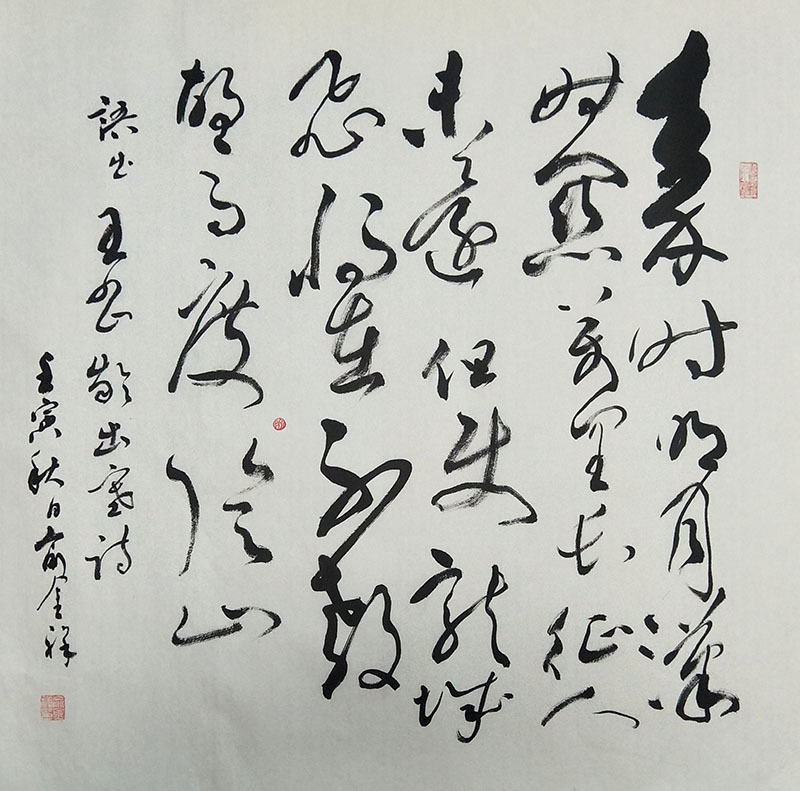 秦时明月漢
时関萬里长征人
未還但使龍城
飞将在不教
胡马度阴山
語出王昌龄出塞诗
壬寅秋日俞金祥